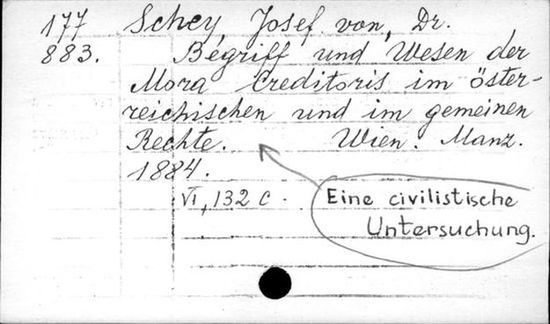 177
883.
Schey, Josef von, Dr.
Begriff und Wesen der
Mora Creditoris im öster-
reichischen und im gemeinen
Rechte. Wien. Manz.
1884.
VI, 132 c.
Eine civilistische
Untersuchung.